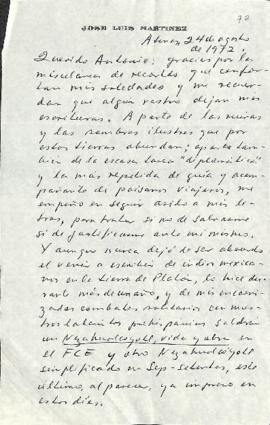 72
JOSE LUIS MARTINEZ
Atenas, 24 de agosto
de 1972.
Querido Antonio: gracias por la
miscelanea de recortes que confor-
tan mis soledades y me recuer-
dan que algun rastro dejan mis
escrituras. A parte de las ruinas
y las sombras ilustres que por
estas tierras abundan; aparte tam-
bién de la escasa tarea "diplomática"
y la más repetida de guía y acom-
pañante de paisanos viajeros, me
empeño en seguir asido a mis le-
tras, para tratar si no de salvarme
si de justificarme ante mi mismo.
Y aunque nunca dejó de ser absurdo
el venir a escribir de indios mexica-
nos en la tierra de Platón, lo hice du-
rante más de un año, y de mis encarni-
zados combates solitarios con nues-
tros latosos prehispánicos saldrán
un Nezahualcóyotl, vida y obra en
el FCE y otro Nezahualcóyotl
simplificado en Sep-Setentas, este
último, al parecer, ya impreso en
estos días.